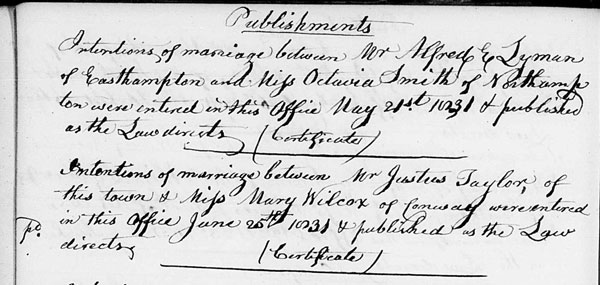 Publishments
Intentions of marriage between Mr Alfred E Lyman
of Easthampton and Miss Octavia Smith of Northamp
ton were entered in this Office May 21st 1831 & published
as the Law directs (Certificate)
Intentions of marriage between Mr Justus Taylor, of
this town & Miss Mary Wilcox of Conway were entered
in this Office June 25th 1831 & published as the Law
pd.
directs (Certificate)